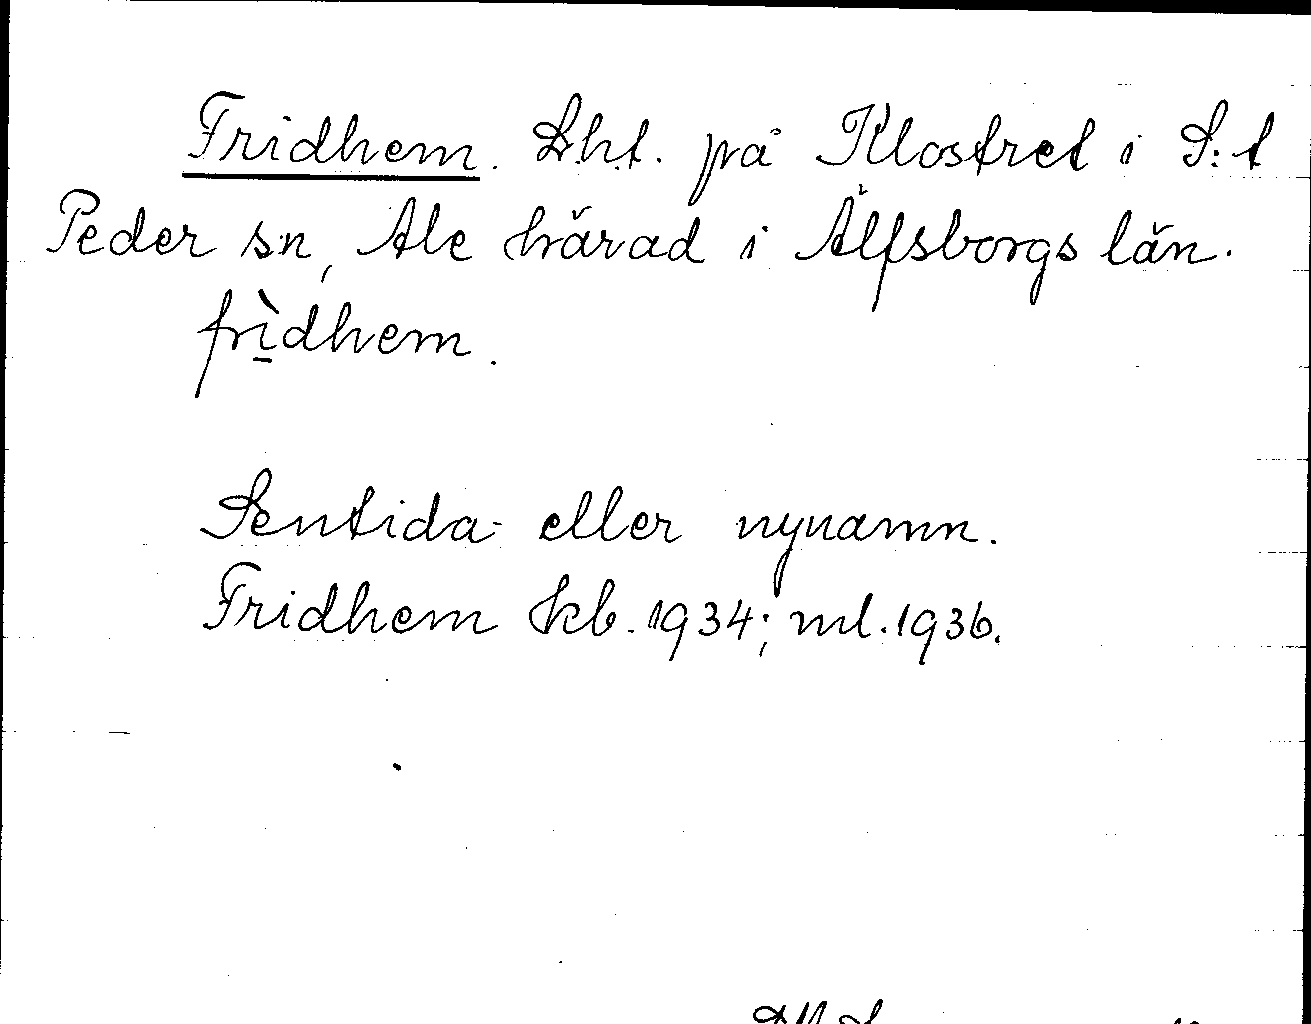 Fridhem. Lht. på Klostret i S:t
Peder sn, Ale härad i Älfsborgs län.
frìdhem.
Sentida- eller nynamn.
Fridhem kb. 1934; ml. 1936.